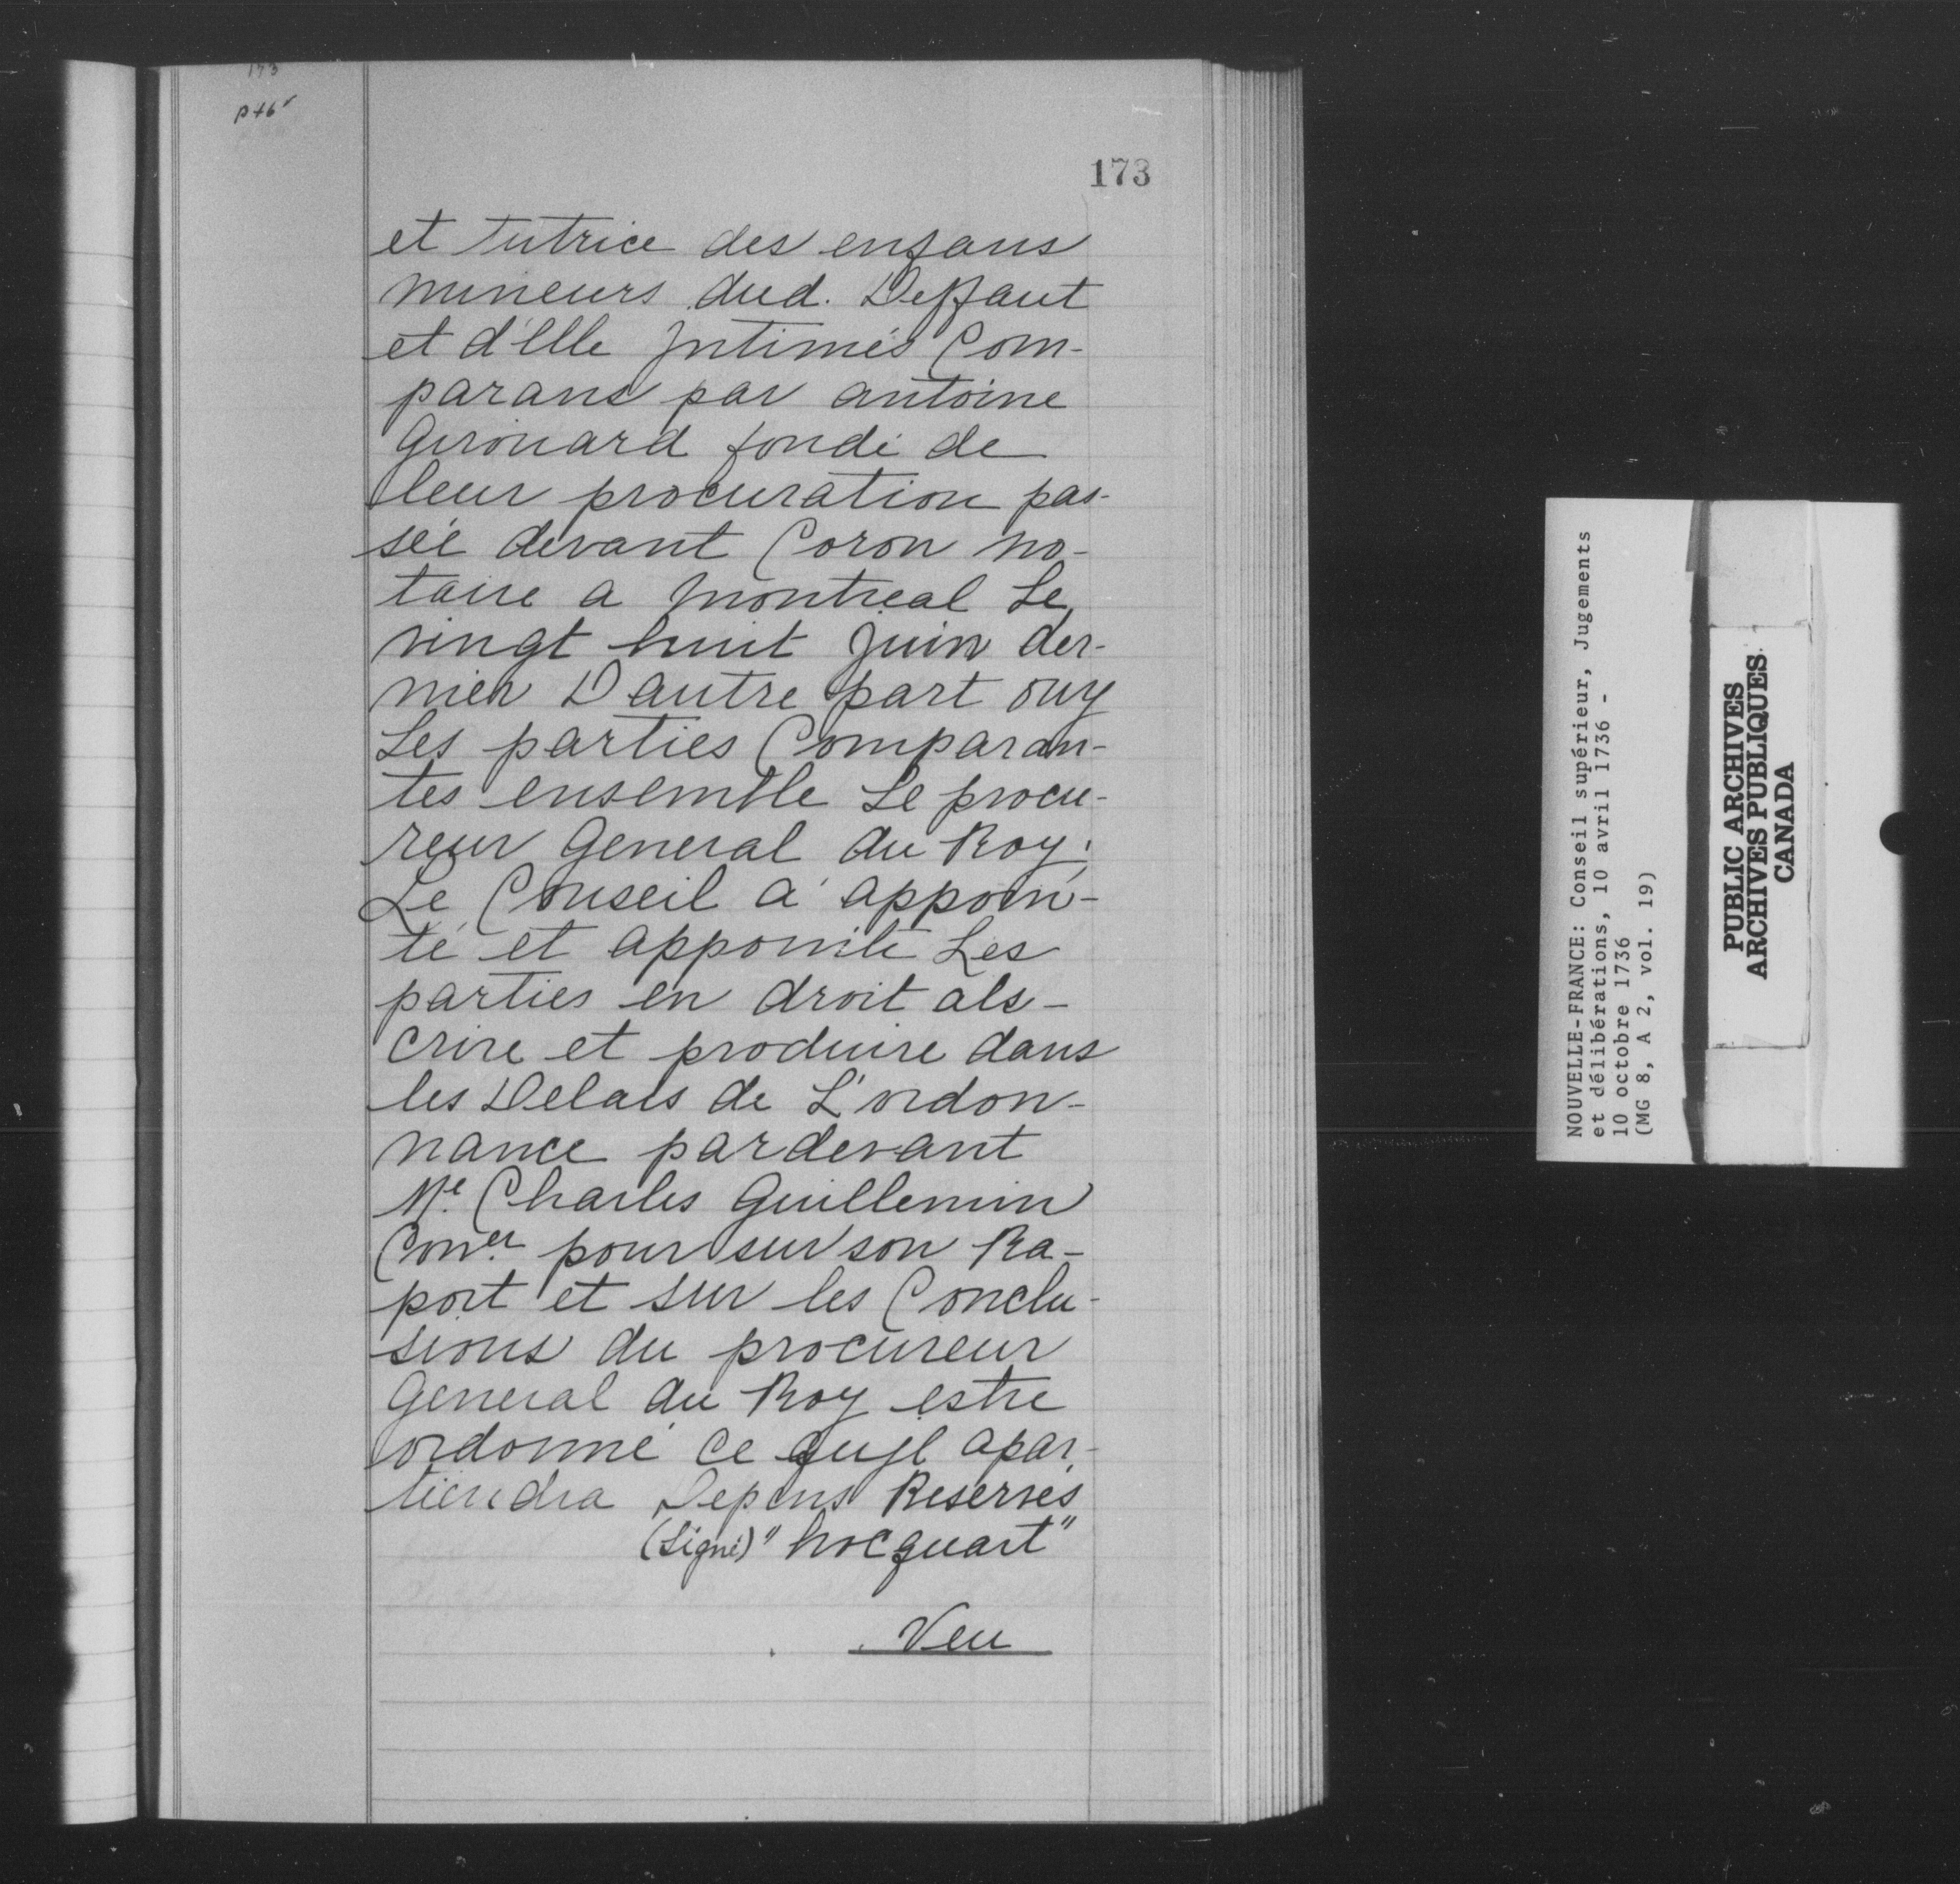 173
173
et tutrice des enfans
mineurs dud. Deffaut
et d'Elle Jntimés Com-
parans par antoine
Gerouard fondé de
leur procuration pas-
séé devant Coron no-
taire a Montreal Le
vingt huit Juin der-
nier D autre part ouy
Les parties Comparan-
tes ensemble Le procu-
reur General du Roy;
Le Conseil a appoin-
té et appointe Les
parties en droit a ls-
crire et produire dans
les Delais de L'ordon-
nance pardevant
Me. Charles Guillemin
Coner. pour sur son Ra-
port et sur les Conclu-
sions du procureur
General du Roy estre
ordonné ce qujl apar-
tiendra Depens Reservés
(Signé) "hocquart"
Veu
NOUVELLE-FRANCE: Conseil supérieur, Jugements
et délibérations, 10 avril 1736 -
10 octobre 1736
(MG 8, A 2, vol. 19)
PUBLIC ARCHIVES
ARCHIVES PUBLIQUES
CANADA